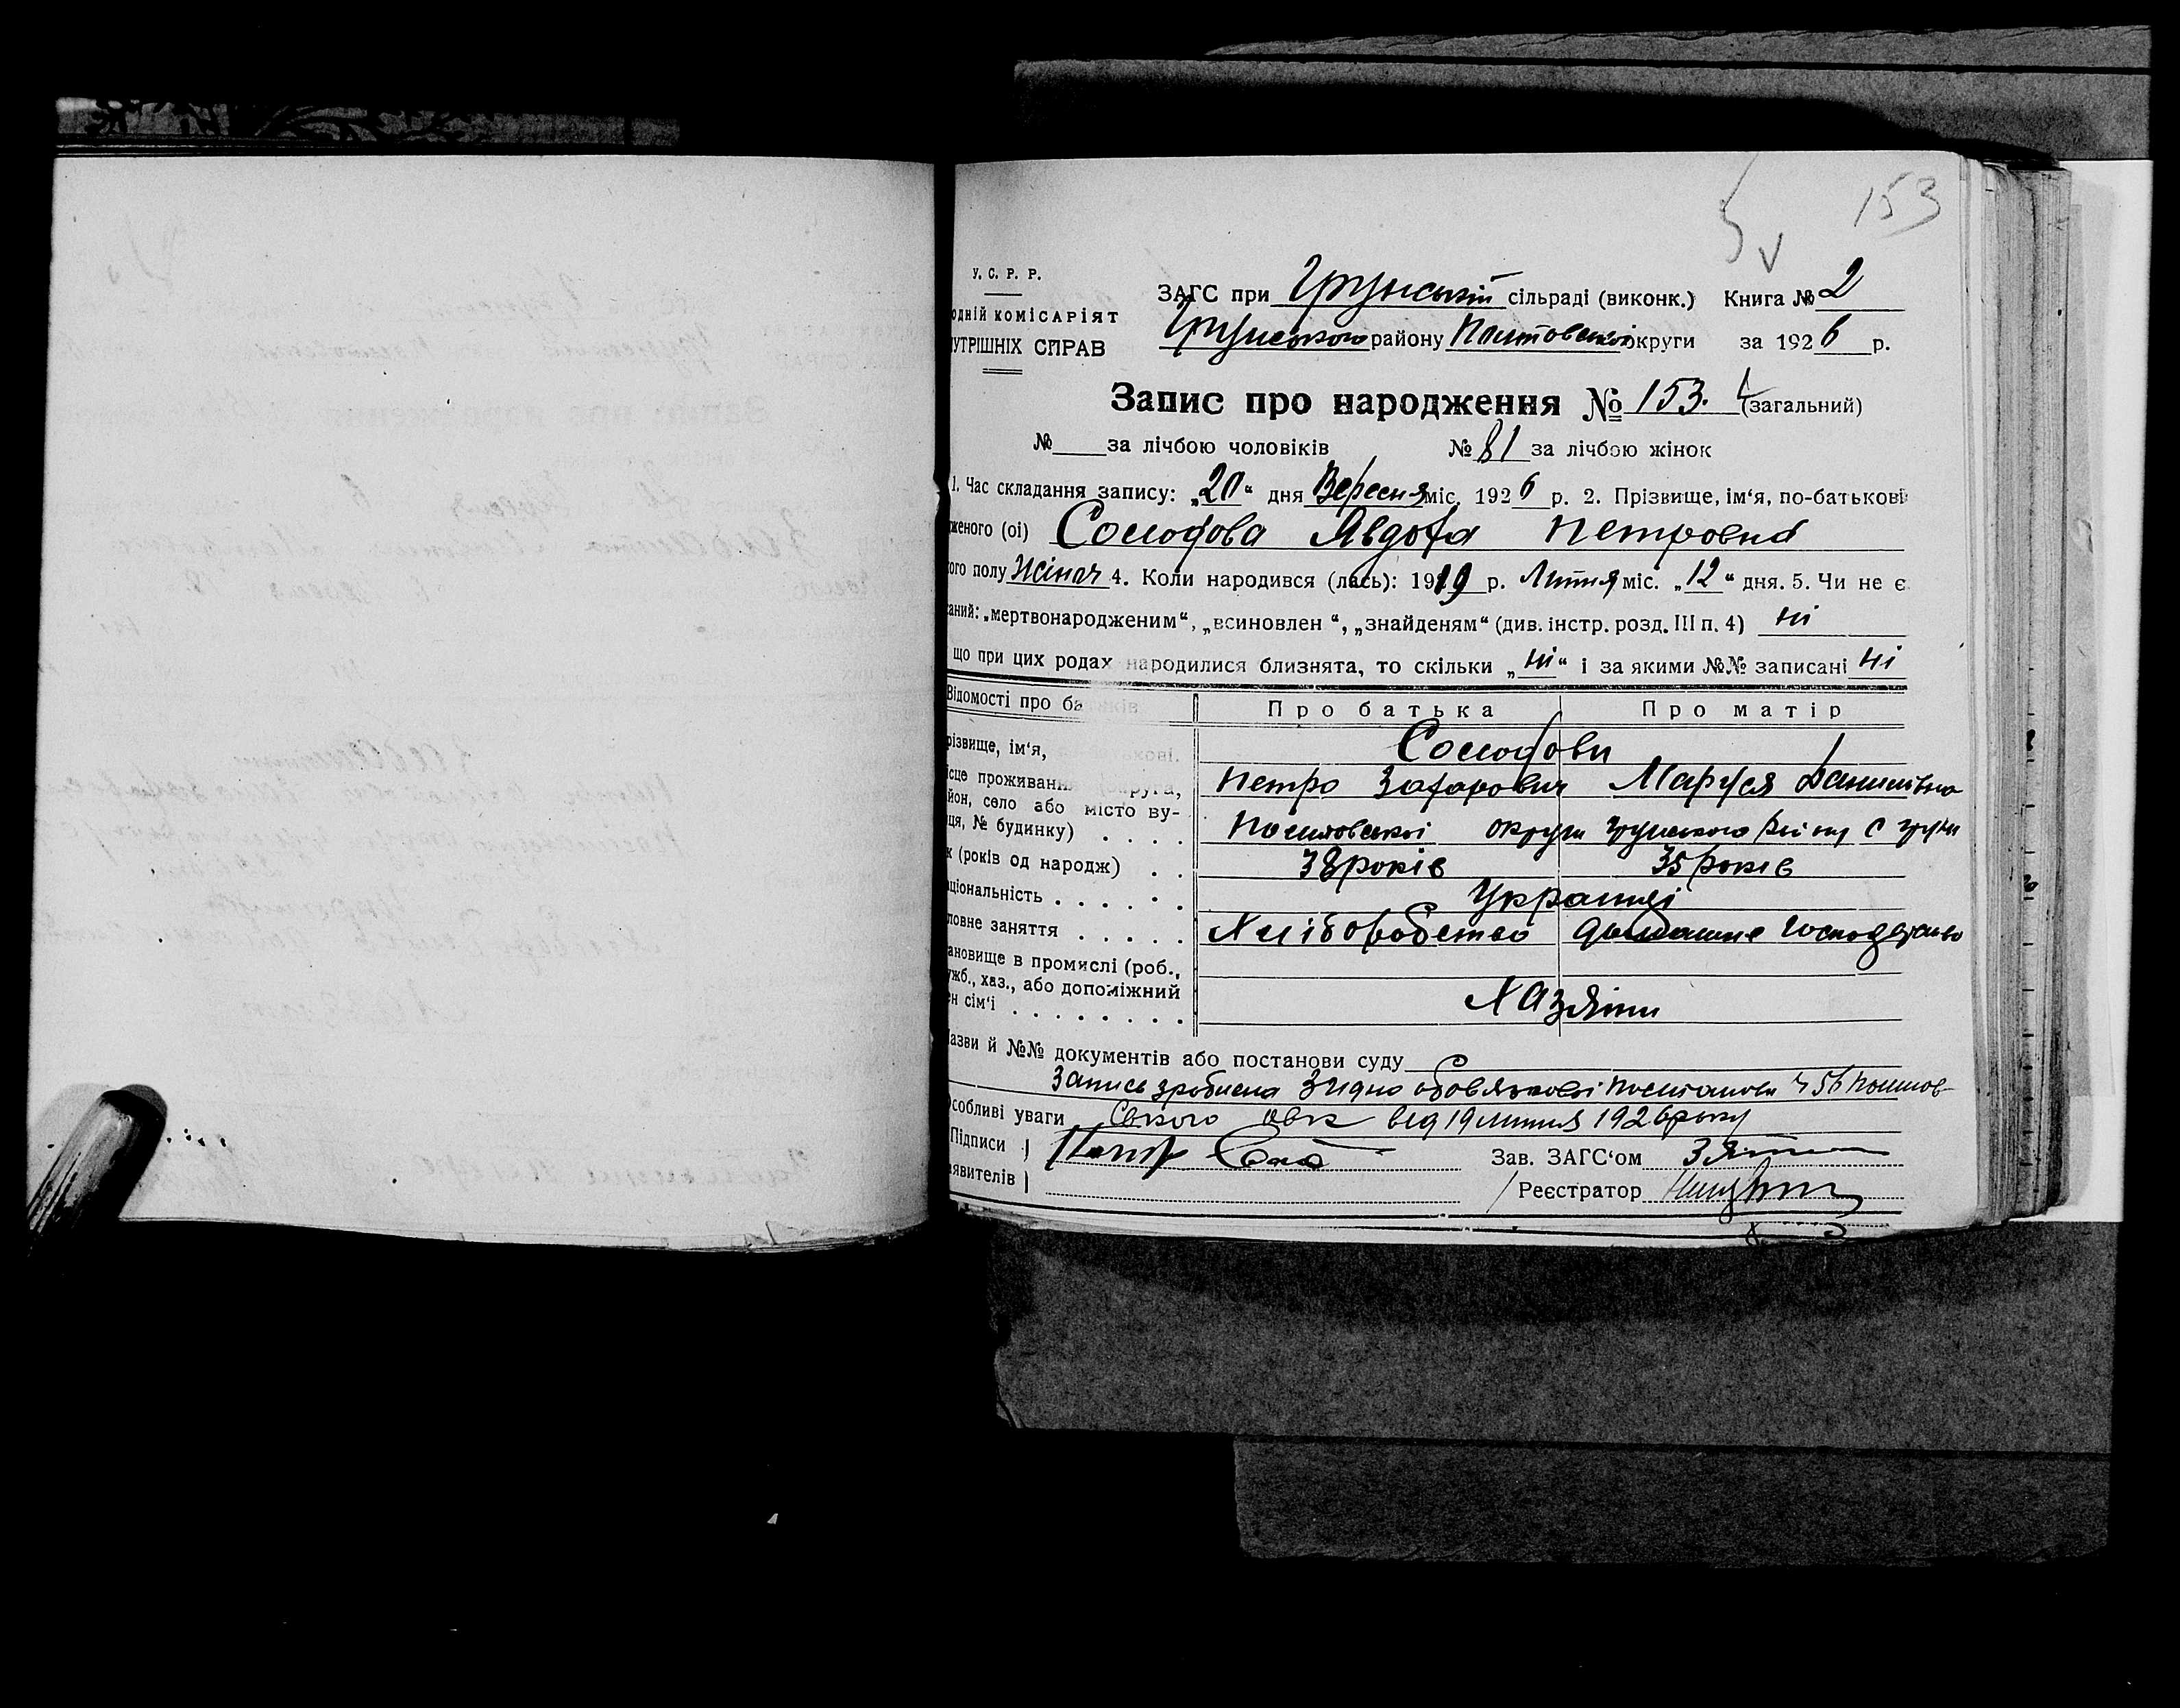 153
У. С. Р. Р.
ЗАГС при Грунській сільраді (виконк.) Книга № 2
одній комісаріят
Грунського району Полтовської округи за 1926 р.
УТРІШНІХ СПРАВ
Запис про народження № 153. (загальний)
№ за лічбою чоловіків № 81 за лічбою жінок
1. Час складання запису: „20“ дня Вересня міс. 1926 р. 2. Прізвище, ім‘я, по-батькові
женого (ої) Солодова Явдоха Петровна
ого полу Жіноч 4. Коли народився (лась): 1919 р. Липня міс. „12“ дня. 5. Чи не є
саний: „мертвонародженим“, „всиновлен“, „знайденям“ (див. інстр. розд. III п. 4) ні
що при цих родах народилися близнята, то скільки „ні“ і за якими №№ записані ні
Відомості про батьків Про батька Про матір
різвище, ім‘я, Солодови
ісце проживання (округа, Петро Захарович Маруся Данилівна
йон, село або місто ву-
ця, № будинку) . . . . Полтовської округи Грунського району С Груни
к (років од народж) . . 38 років 35 років
аціональність . . . . . . Українці
ловне заняття . . . . . Хліборобство домашнє господарство
ановище в промислі (роб.,
ужб., хаз., або допоміжний
ен сім‘ї . . . . . . . . Хазяіни
азви й №№ документів або постанови суду
Запись зроблена Згідно обовязкової постанови Ч 56 Полтов-
собливі уваги ського овк від 19 липня 1926 року
Підписи }
Зав. ЗАГС‘ом
аявителів }
Реєстратор